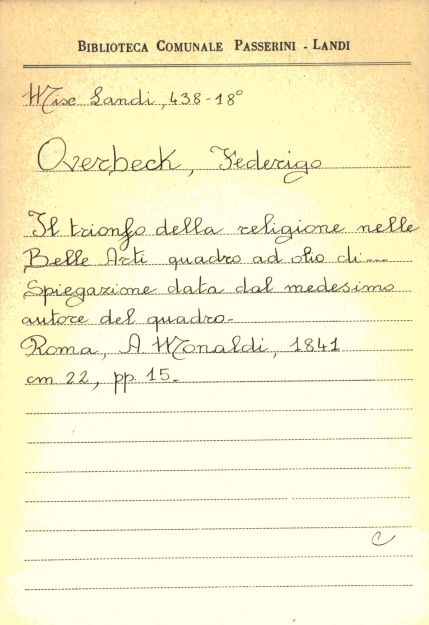 BIBLIOTECA COMUNALE PASSERINI - LANDI
Misc Landi, 438-18°
Overbeck, Federigo
Il trionfo della religione nelle
Belle Arti quadro ad olio di...
Spiegazione data dal medesimo
autore del quadro-
Roma, A Monaldi, 1841
cm 22, pp 15.
C